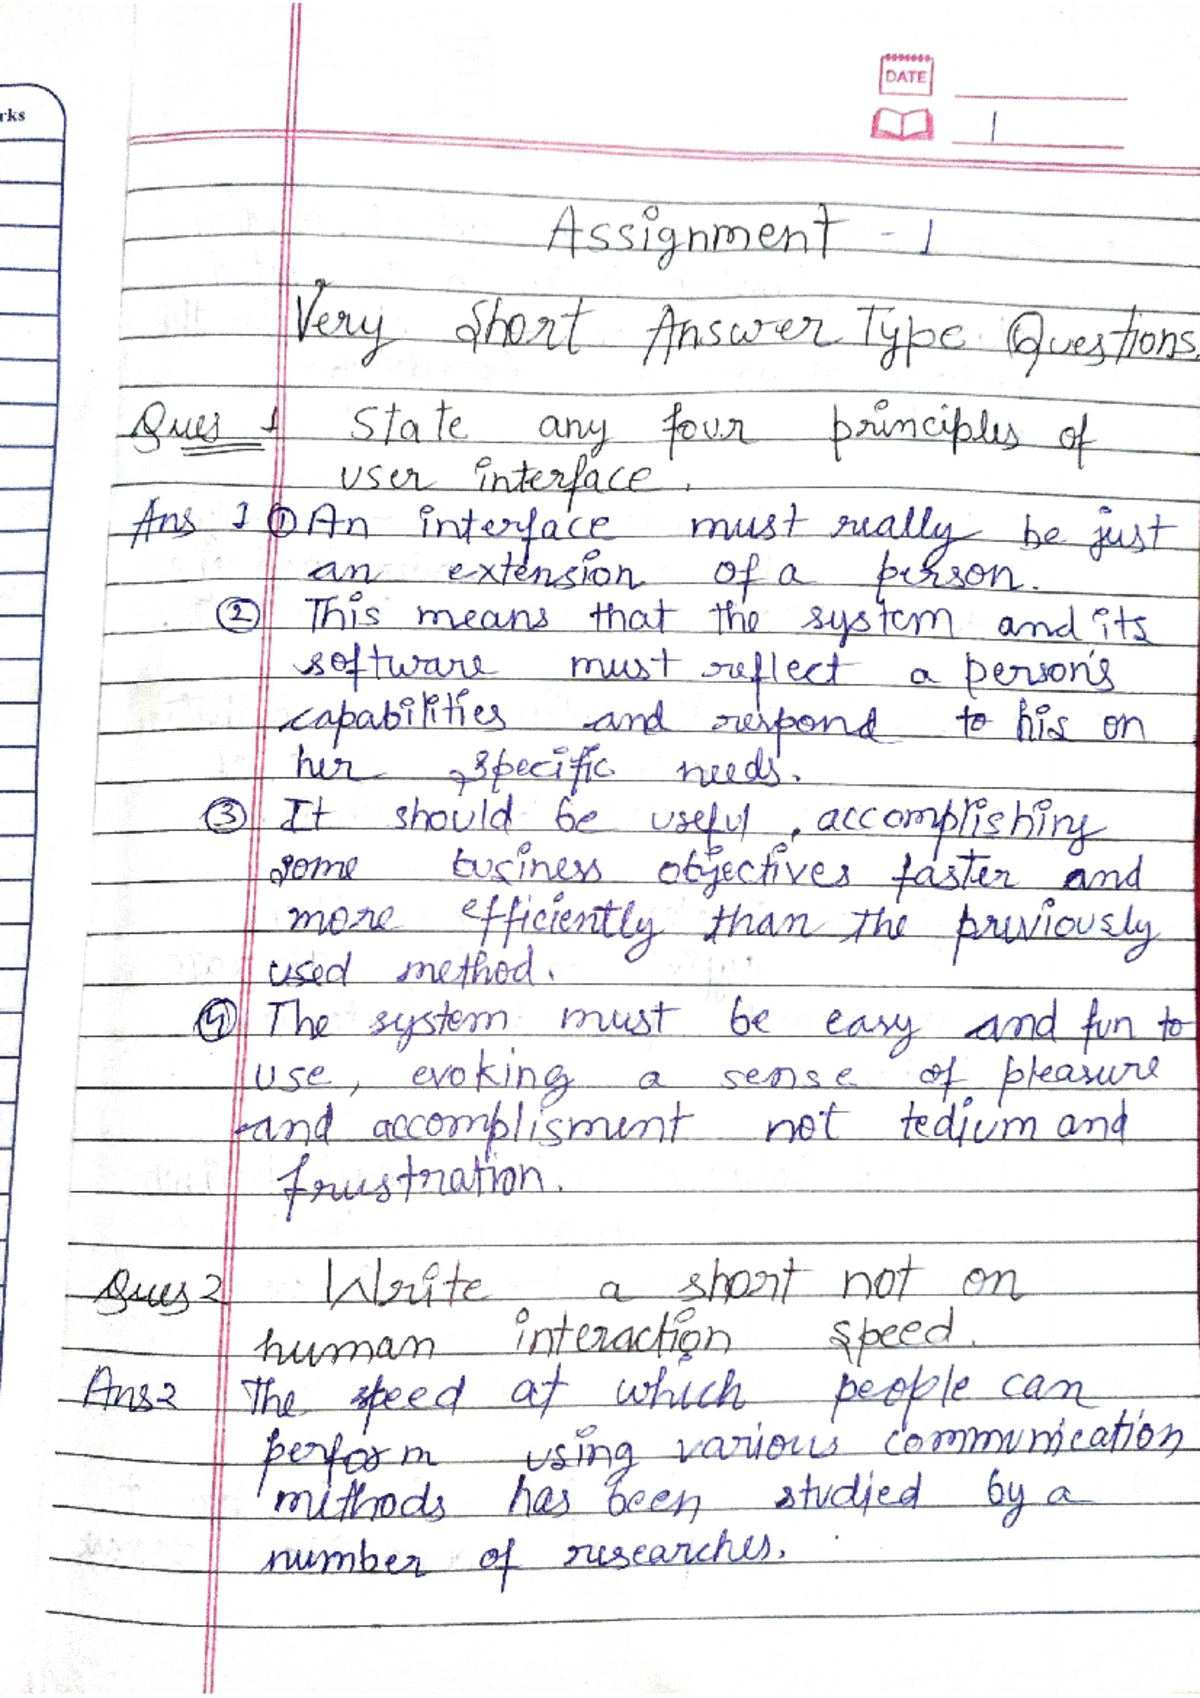 rks
DATE
1
Assignment - 1
Very Short Answer Type Questions.
Ques 1 State any four principles of
user interface.
Ans 1 ① An interface must really be just
an extension of a person.
② This means that the system and its
software must reflect a person's
capabilities and respond to his on
her specific needs.
③ It should be useful, accomplishing
some business objectives faster and
more efficiently than the previously
used method.
④ The system must be easy and fun to
use, evoking a sense of pleasure
and accomplisment not tedium and
frustration.
Ques 2 Write a short not on
human interaction speed.
Ans 2 The speed at which people can
perform using various communication
methods has been studied by a
number of researches.